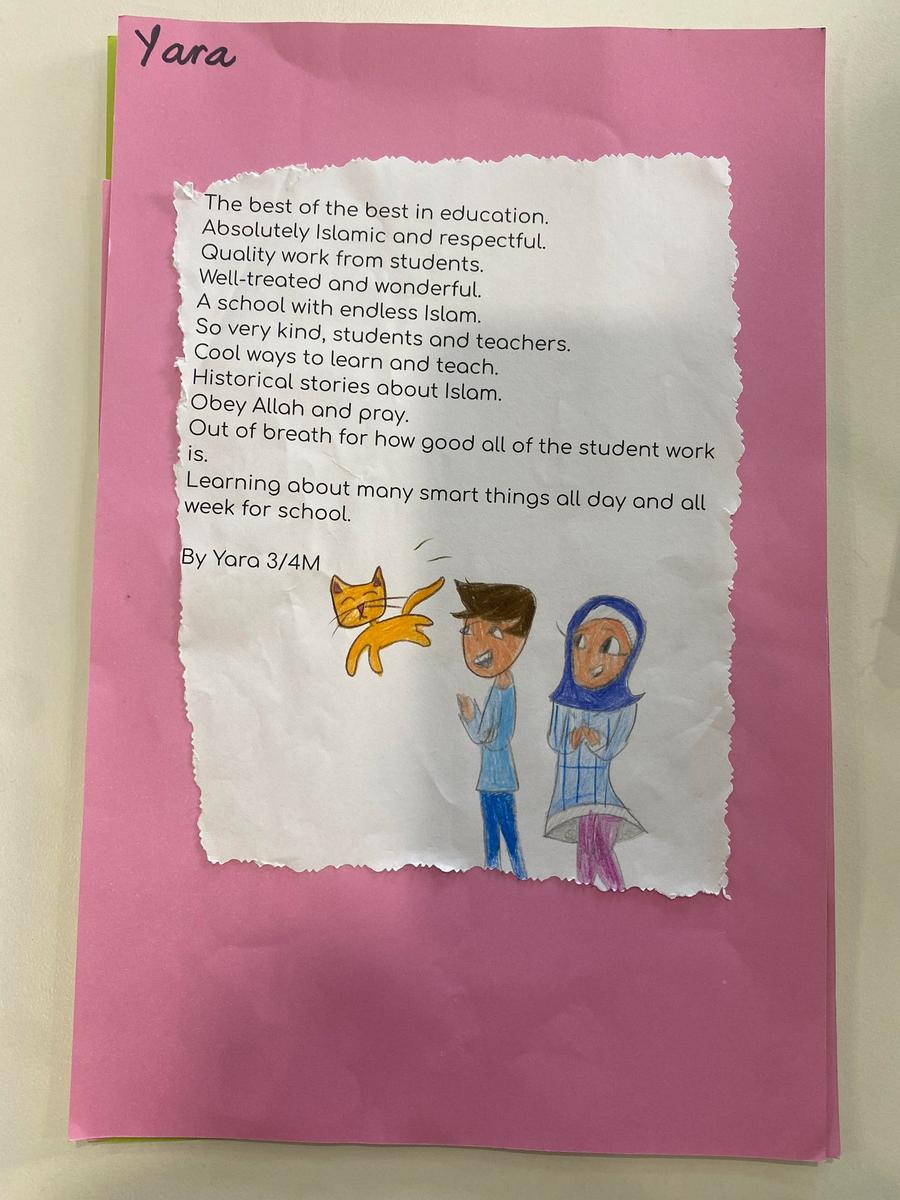 Yara
The best of the best in education.
Absolutely Islamic and respectful.
Quality work from students.
Well-treated and wonderful.
A school with endless Islam.
So very kind, students and teachers.
Cool ways to learn and teach.
Historical stories about Islam.
Obey Allah and pray.
Out of breath for how good all of the student work
is.
Learning about many smart things all day and all
week for school.
By Yara 3/4M